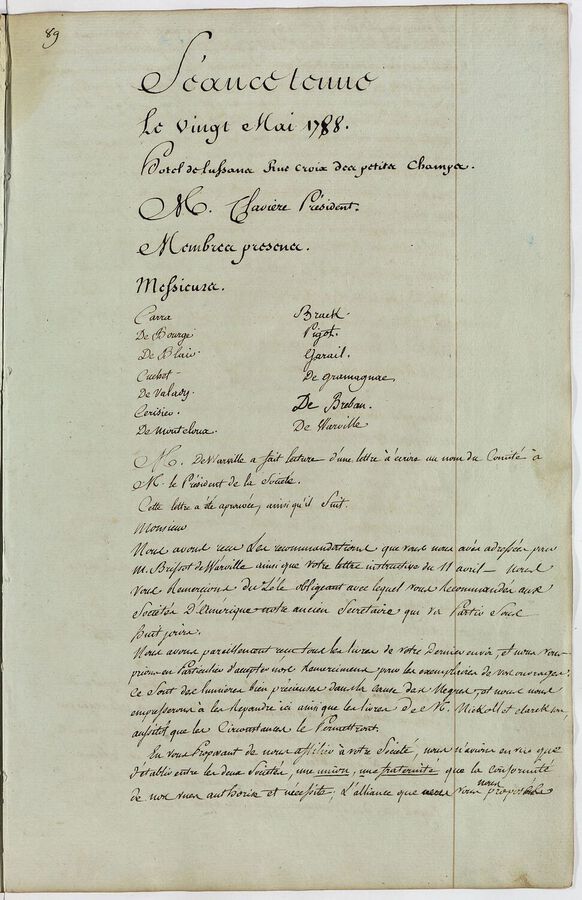 89
Séance tenue
Le vingt Mai 1788.
Hotel de Lussans Rue croix des petits Champs.
M. Claviere Président.
Membres presens.
Messieurs.
Carra Brack.
De Bourge Pigot.
De Blair Garail.
Cuchet De gramagnac
De Valady. De Breban.
Cerisier. De Warville
De Montcloux.
M. De Warville a fait lecture d'une lettre à écrire au nom du Comité à
M. le Président de la Societé.
Cette lettre a été aprouvée, ainsi qu'il Suit.
Monsieur
Nous avons recu Les recommandations que vous nous avés adressées pour
M. Brissot de Warville ainsi que votre lettre instructive du 11 avril – Nous
Vous Remercions du Zéle obligeant avec lequel vous Recommandés aux
Sociétés D'Amerique notre ancien Secretaire qui va Partir Sous
huit jours.
Nous avons pareillement recu tous les livres de votre Dernier envoi, et nous vous
prions en Particulier d'accepter nos Remercimens pour les exemplaires de vos ouvrages.
Ce Sont des lumières bien précieuses dans la cause des Negres, et nous nous
empresserons à les Repandre ici ainsi que les livres de M. Nickolls et clarckson,
aussitôt que les Circonstances le Permettront.
En vous Proposant de nous affilier à votre Societé, nous n'avions en vue que
d'établir entre les deux Societés, une union, une fraternité que la conformité
de nos vues authorise et nécessite; L'alliance que nous vous proposées